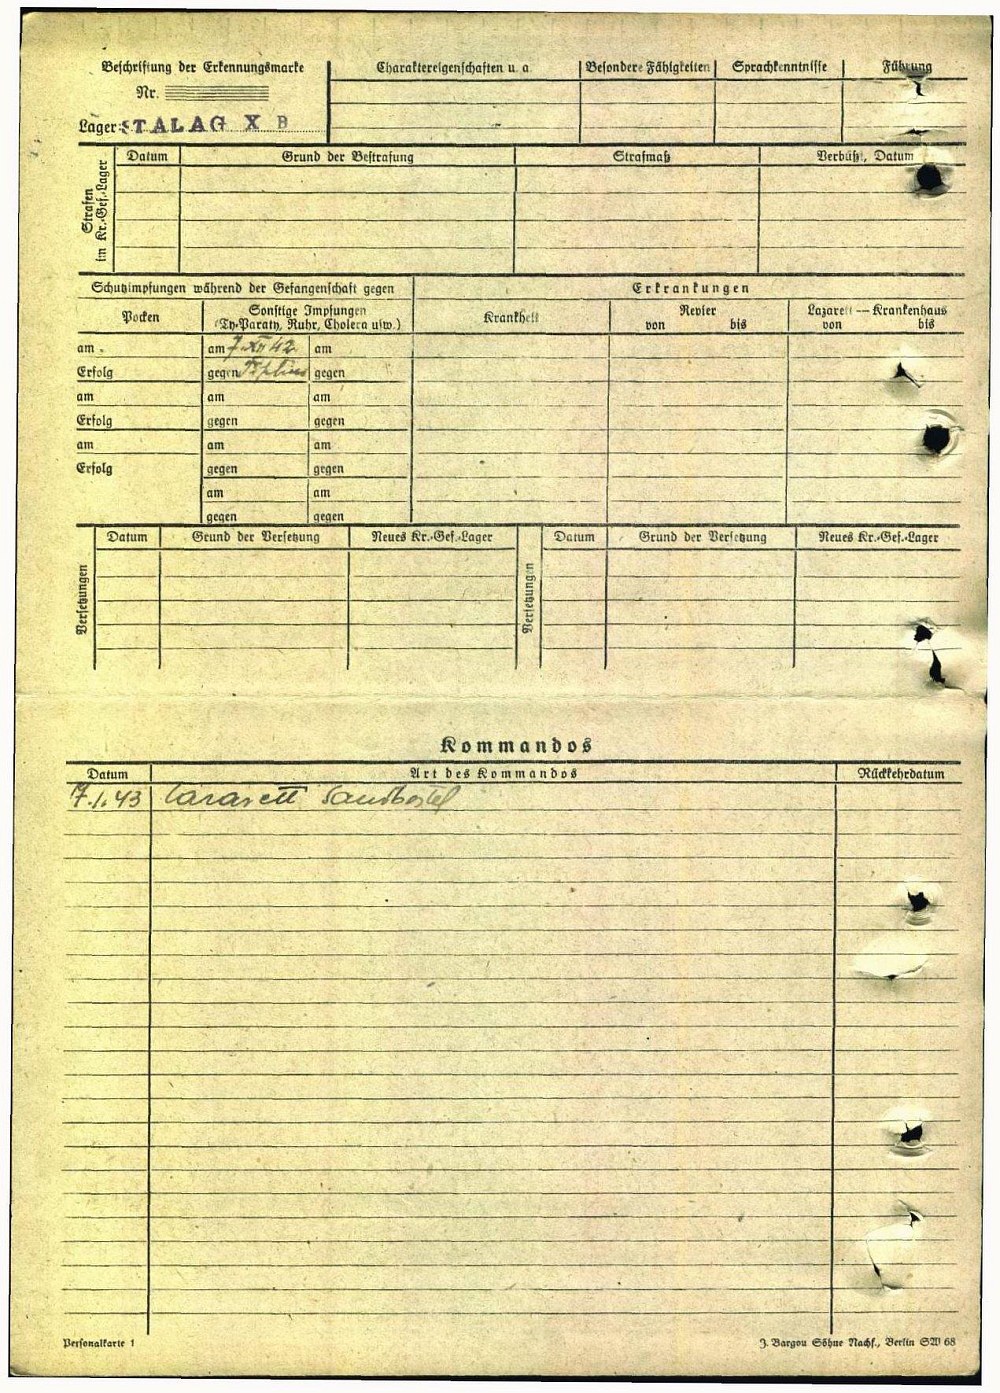 Beschriftung der Erkennungsmarke
Nr.
Lager: STALAG X B
Charaktereigenschaften u. a.
Besondere Fähigkeiten
Sprachkenntnisse
Führung
Strafen
im Kr.-Gef.-Lager
Datum
Grund der Bestrafung
Strafmaß
Verbüßt, Datum
Schutzimpfungen während der Gefangenschaft gegen
Erkrankungen
Pocken
Sonstige Impfungen
(Ty.-Paraty., Ruhr, Cholera usw.)
Krankheit
Revier
von bis
Lazarett — Krankenhaus
von bis
am am 7.XII 42 am
Erfolg gegen gegen
am am am
Erfolg gegen gegen
am am am
Erfolg gegen gegen
am am
gegen gegen
Versetzungen
Datum Grund der Versetzung Neues Kr.-Gef.-Lager
Versetzungen
Datum Grund der Versetzung Neues Kr.-Gef.-Lager
Kommandos
Datum Art des Kommandos Rückkehrdatum
7.1.43 Lazarett Sandbostel
Personalkarte 1
J. Bargou Söhne Nachf., Berlin SW 68